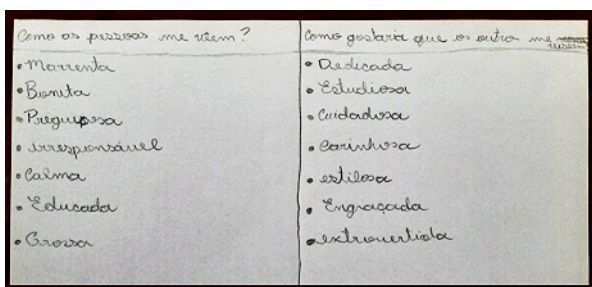 Como as pessoas me vêem?
• Marrenta
• Bonita
• Preguiçosa
• irresponsável
• Calma
• Educada
• Grossa
Como gostaria que os outro me
vissem
• Dedicada
• Estudiosa
• Cuidadosa
• Carinhosa
• estilosa
• Engraçada
• extrovertida